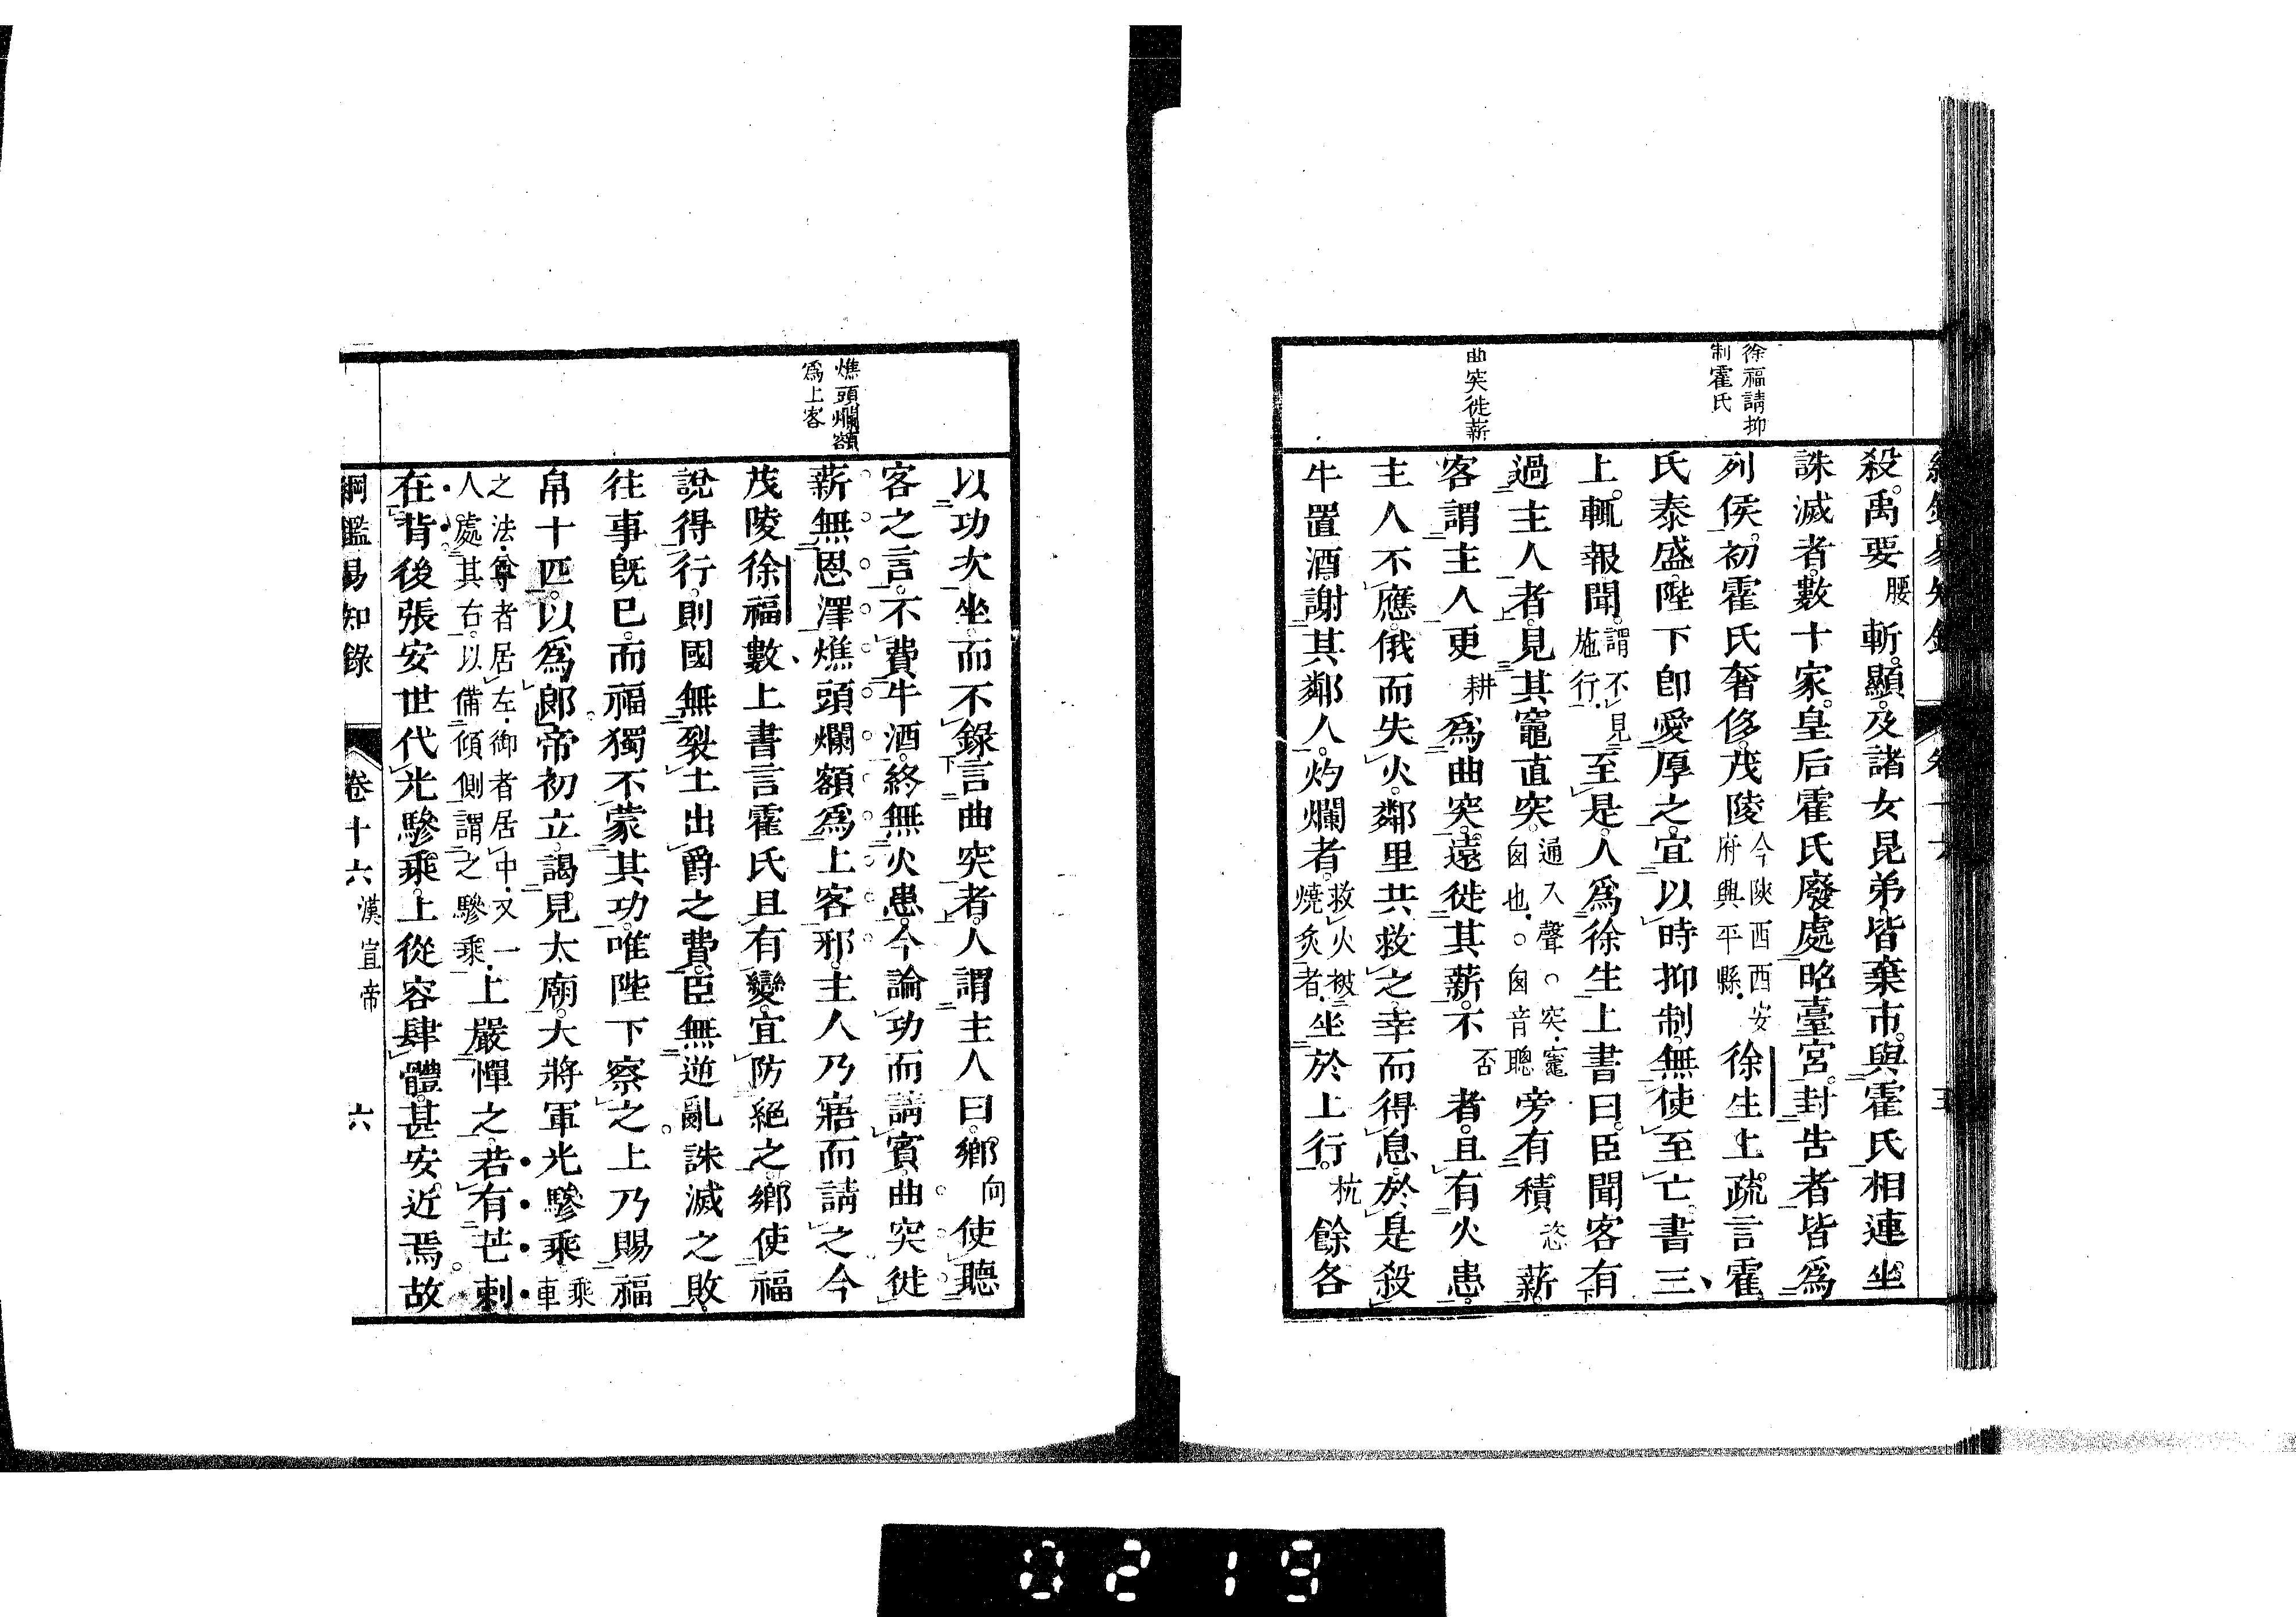 徐福請抑
制霍氏
曲突徙薪
殺。禹要腰斬。顯。及諸女昆弟。皆棄市。與霍氏相連坐
誅滅者。數十家。皇后霍氏廢處昭臺宮。封告者皆爲
列侯。初霍氏奢侈。茂陵今陝西西安府興平縣。徐生上疏言霍
氏泰盛。陛下卽愛厚之。宜以時抑制。無使至亡。書三
上。輒報聞。謂不見施行。至是。人爲徐生上書曰。臣聞客有
過主人者。見其竈直突。通入聲○突。竈囪也。○囪音聰旁有積恣薪。
客謂主人更耕爲曲突。遠徙其薪。不否者。且有火患。
主人不應。俄而失火。鄰里共救之。幸而得息。於是殺
牛置酒。謝其鄰人。灼爛者。救火被燒炙者。坐於上行。杭餘各
燋頭爛額
爲上客
以功次坐。而不錄言曲突者。人謂主人曰。鄉向使聽
客之言。不費牛酒。終無火患。今論功而請賓。曲突徙
薪無恩澤。燋頭爛額爲上客邪。主人乃寤而請之。今
茂陵徐福。數上書言霍氏且有變。宜防絕之。鄉使福
說得行。則國無裂土出爵之費。臣無逆亂誅滅之敗。
往事旣已。而福獨不蒙其功。唯陛下察之。上乃賜福
帛十匹。以爲郎。帝初立。謁見太廟。大將軍光驂乘乘車
之法。尊者居左。御者居中。又一人。處其右。以備傾側。謂之驂乘。上嚴憚之。若有芒刺
在背。後張安世代光驂乘。上從容肆體。甚安近焉。故
綱鑑易知錄 卷十六 漢宣帝 六
0219